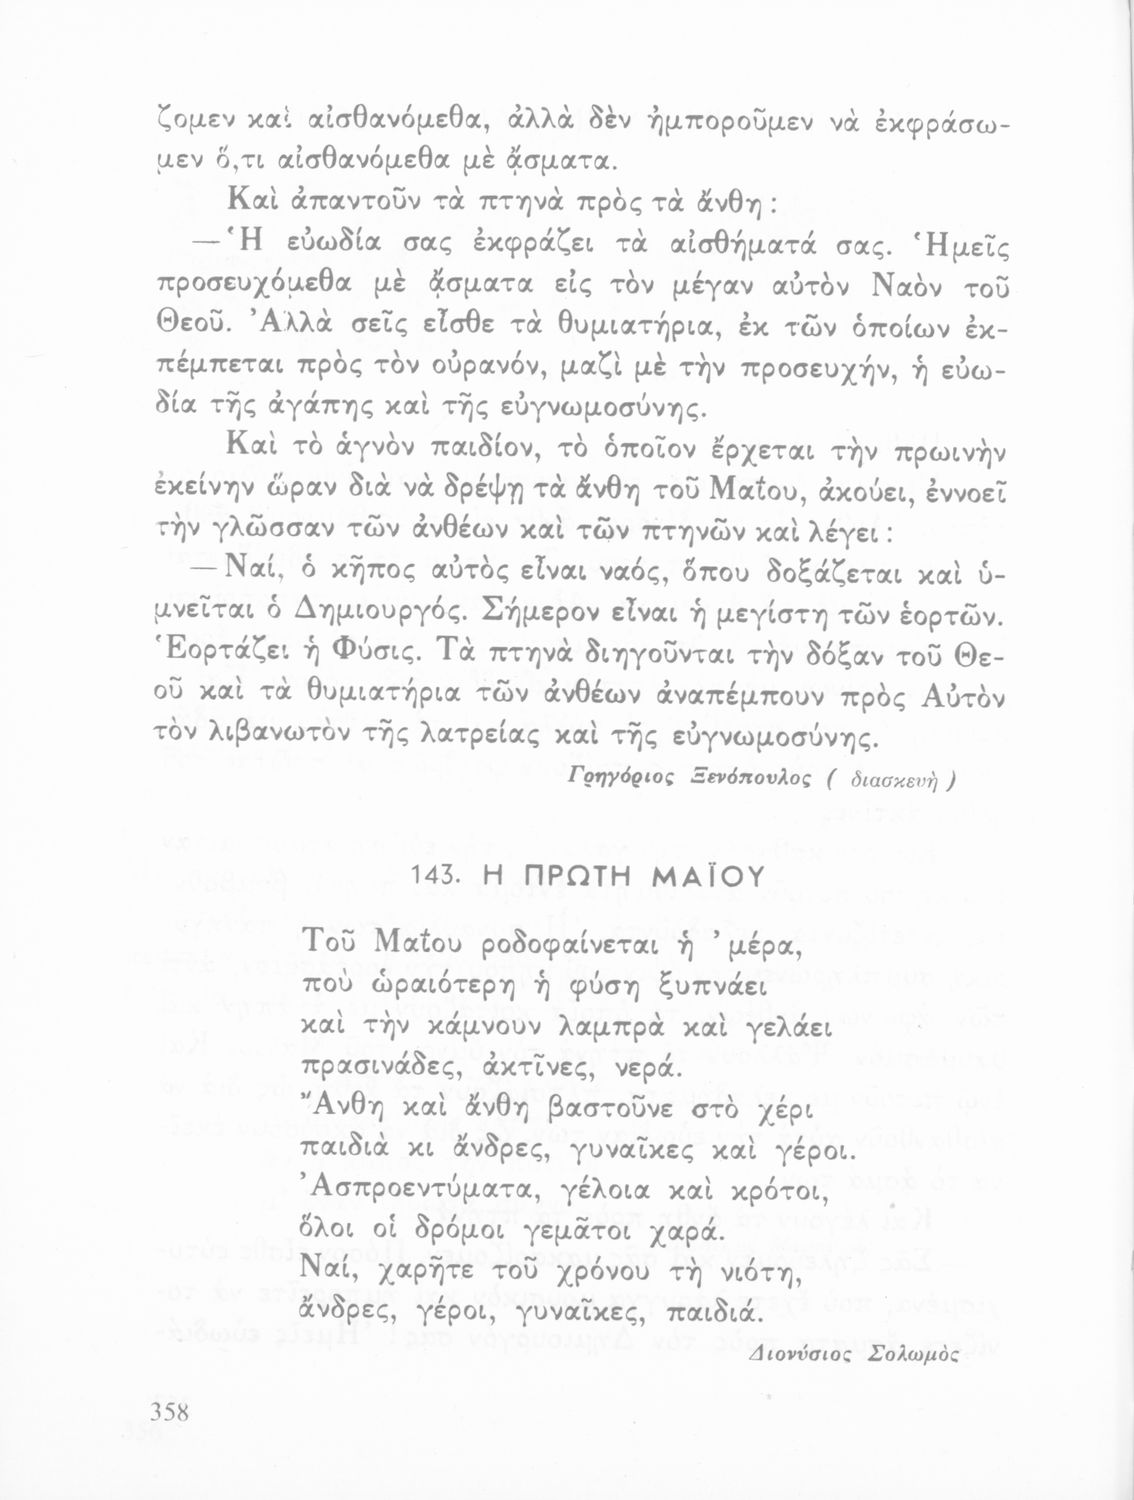 ζομεν καὶ αἰσθανόμεθα, ἀλλὰ δὲν ἠμποροῦμεν νὰ ἐκφράσω-
μεν ὅ,τι αἰσθανόμεθα μὲ ᾄσματα.
Καὶ ἀπαντοῦν τὰ πτηνὰ πρὸς τὰ ἄνθη :
— Ἡ εὐωδία σας ἐκφράζει τὰ αἰσθήματά σας. Ἡμεῖς
προσευχόμεθα μὲ ᾄσματα εἰς τὸν μέγαν αὐτὸν Ναὸν τοῦ
Θεοῦ. Ἀλλὰ σεῖς εἶσθε τὰ θυμιατήρια, ἐκ τῶν ὁποίων ἐκ-
πέμπεται πρὸς τὸν οὐρανόν, μαζὶ μὲ τὴν προσευχήν, ἡ εὐω-
δία τῆς ἀγάπης καὶ τῆς εὐγνωμοσύνης.
Καὶ τὸ ἁγνὸν παιδίον, τὸ ὁποῖον ἔρχεται τὴν πρωινὴν
ἐκείνην ὥραν διὰ νὰ δρέψῃ τὰ ἄνθη τοῦ Μαΐου, ἀκούει, ἐννοεῖ
τὴν γλῶσσαν τῶν ἀνθέων καὶ τῶν πτηνῶν καὶ λέγει :
— Ναί, ὁ κῆπος αὐτὸς εἶναι ναός, ὅπου δοξάζεται καὶ ὑ-
μνεῖται ὁ Δημιουργός. Σήμερον εἶναι ἡ μεγίστη τῶν ἑορτῶν.
Ἑορτάζει ἡ Φύσις. Τὰ πτηνὰ διηγοῦνται τὴν δόξαν τοῦ Θε-
οῦ καὶ τὰ θυμιατήρια τῶν ἀνθέων ἀναπέμπουν πρὸς Αὐτὸν
τὸν λιβανωτὸν τῆς λατρείας καὶ τῆς εὐγνωμοσύνης.
Γρηγόριος Ξενόπουλος ( διασκευὴ )
143. Η ΠΡΩΤΗ ΜΑΪΟΥ
Τοῦ Μαΐου ροδοφαίνεται ἡ ’μέρα,
ποὺ ὡραιότερη ἡ φύση ξυπνάει
καὶ τὴν κάμνουν λαμπρὰ καὶ γελάει
πρασινάδες, ἀκτῖνες, νερά.
Ἄνθη καὶ ἄνθη βαστοῦνε στὸ χέρι
παιδιὰ κι ἄνδρες, γυναῖκες καὶ γέροι.
Ἀσπροεντύματα, γέλοια καὶ κρότοι,
ὅλοι οἱ δρόμοι γεμᾶτοι χαρά.
Ναί, χαρῆτε τοῦ χρόνου τὴ νιότη,
ἄνδρες, γέροι, γυναῖκες, παιδιά.
Διονύσιος Σολωμὸς
358